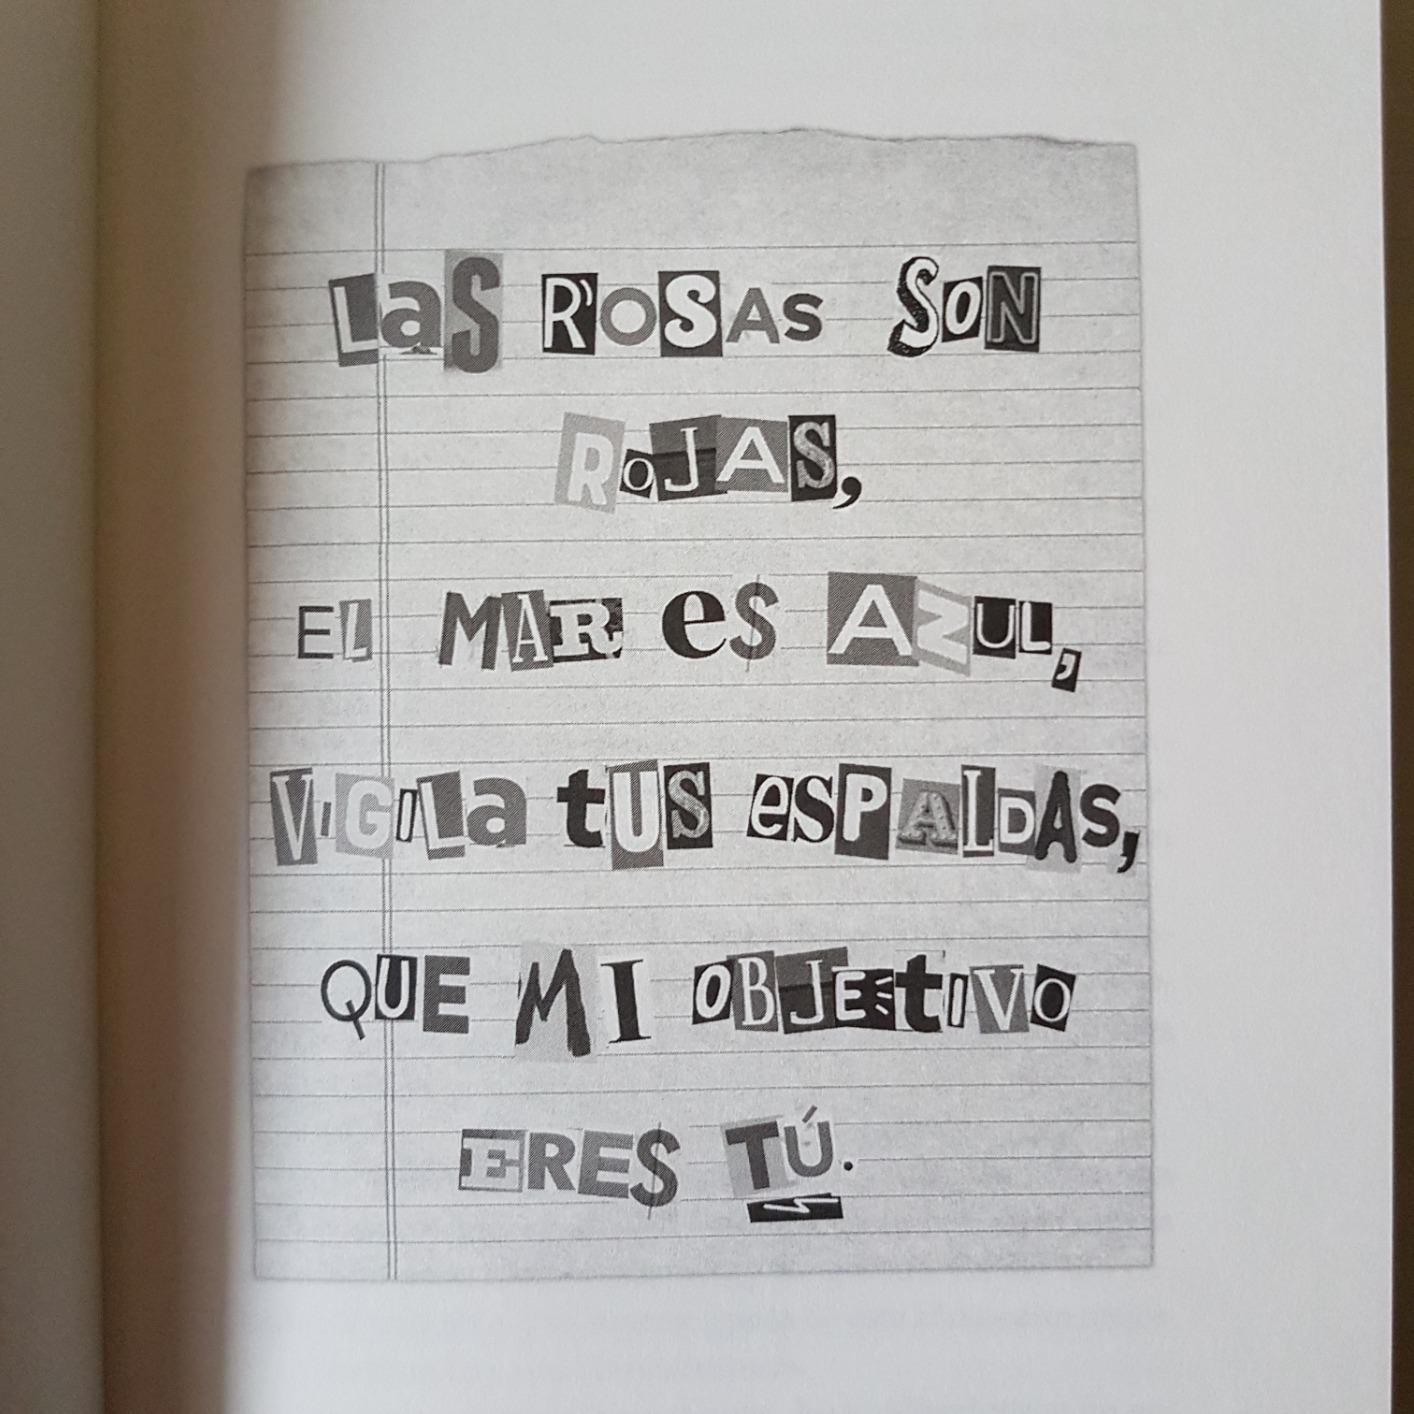 Las R'OSAS SON
ROJAS,
EL MAR es AZUL,
ViGiLa tUS esPALDAS,
QUE MI OBJEtIVO
ERES TÚ.